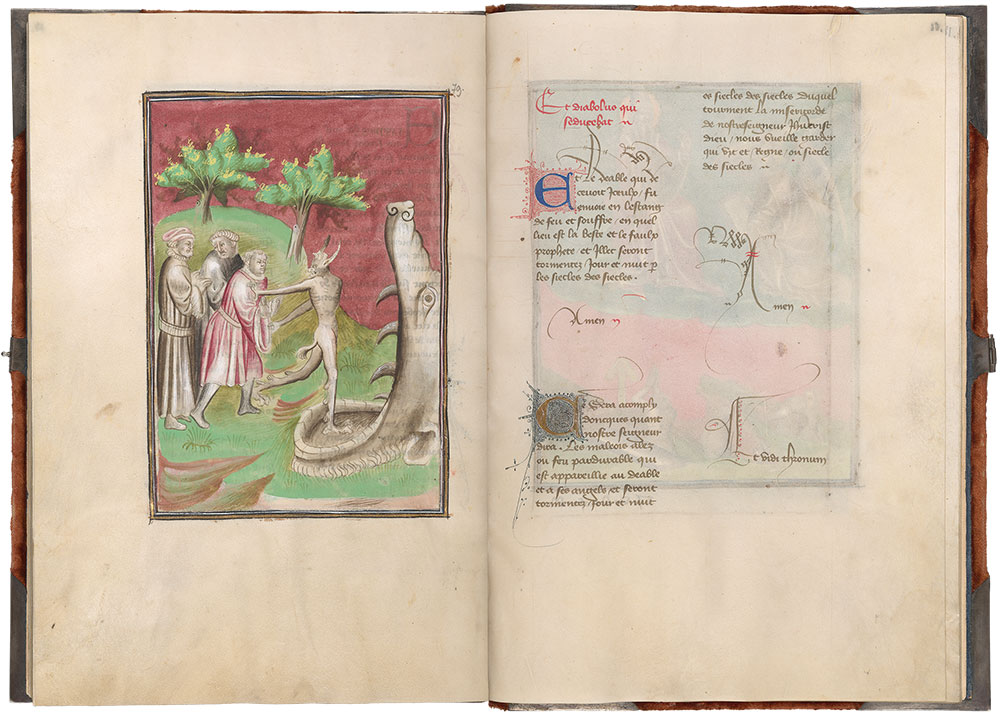 79
Et diabolus qui
seducebat
Et le deable qui de
cevoit Iceulx / fu
envoie en lestang
de feu et souffre / en quel
lieu est la beste et le faulx
prophete et Illec seront
tormentez / Jour et nuit p
les siecles des siecles .
Amen
Ce sera acomply
doncques quant
nostre seigneur
dira . Les maleois alez
ou feu pardurable qui
est appareillie au deable
et a ses angels / et seront
tormentez / Jour et nuit
es siecles des siecles duquel
tourment la misericorde
de nostreseigneur Ihucrist
dieu / nous vueille garder
qui vit et / Regne / ou siecle
des siecles
Amen
Et vidi thronum